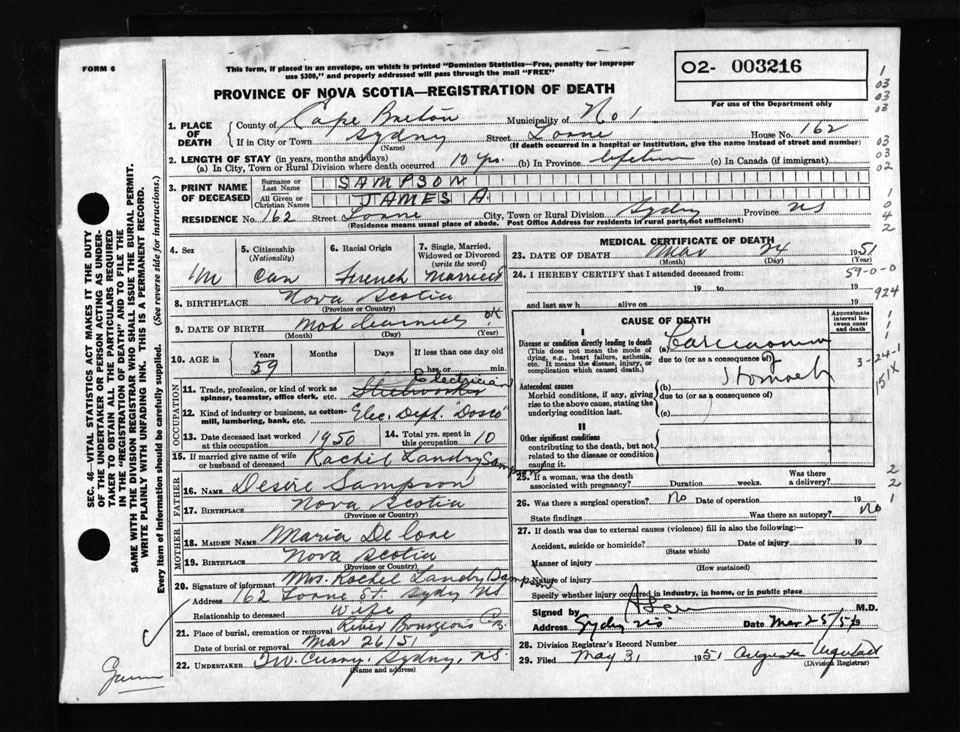 FORM 6
This form, if placed in an envelope, on which is printed "Dominion Statistics—Free, penalty for improper
use $300," and properly addressed will pass through the mail "FREE"
02- 003216
For use of the Department only
PROVINCE OF NOVA SCOTIA—REGISTRATION OF DEATH
1. PLACE OF DEATH
County of Cape Breton Municipality of No 1
If in City or Town Sydney Street Lorne House No. 162
(Name) (If death occurred in a hospital or institution, give the name instead of street and number)
2. LENGTH OF STAY (in years, months and days)
(a) In City, Town or Rural Division where death occurred 10 yrs. (b) In Province lifetime (c) In Canada (if immigrant)
3. PRINT NAME OF DECEASED
Surname or Last Name SAMPSON
All Given or Christian Names JAMES A.
RESIDENCE No. 162 Street Lorne City, Town or Rural Division Sydney Province NS
(Residence means usual place of abode. Post Office Address for residents in rural parts not sufficient)
4. Sex M
5. Citizenship (Nationality) Can
6. Racial Origin French
7. Single, Married, Widowed or Divorced (write the word) Married
8. BIRTHPLACE Nova Scotia
(Province or Country)
9. DATE OF BIRTH
(Month) (Day) (Year)
10. AGE in Years 59 Months Days If less than one day old hrs. or min.
OCCUPATION
11. Trade, profession, or kind of work as spinner, teamster, office clerk, etc. Steelworker Electrician
12. Kind of industry or business, as cotton-mill, lumbering, bank, etc. Elec. Dept. Dosco
13. Date deceased last worked at this occupation 1950
14. Total yrs. spent in this occupation 10
15. If married give name of wife or husband of deceased Rachel Landry Sampson
FATHER
16. NAME Desire Sampson
17. BIRTHPLACE Nova Scotia
(Province or Country)
MOTHER
18. MAIDEN NAME Maria
19. BIRTHPLACE Nova Scotia
(Province or Country)
20. Signature of informant Mrs. Rachel Landry Sampson
Address 162 Lorne St. Sydney NS
Relationship to deceased Wife
21. Place of burial, cremation or removal River Bourgeois C.B.
Date of burial or removal Mar 26/51
22. UNDERTAKER Curry, Sydney, N.S.
(Name and address)
MEDICAL CERTIFICATE OF DEATH
23. DATE OF DEATH Mar 24 1951
(Month) (Day) (Year)
24. I HEREBY CERTIFY that I attended deceased from:
19 to 19
and last saw h alive on 19
CAUSE OF DEATH
Approximate interval between onset and death
I
Disease or condition directly leading to death (a) Carcinoma
(This does not mean the mode of dying, e.g., heart failure, asthenia, etc. It means the disease, injury, or complication which caused death.)
due to (or as a consequence of) of
Stomach
Antecedent causes (b)
Morbid conditions, if any, giving rise to the above cause, stating the underlying condition last.
due to (or as a consequence of)
(c)
II
Other significant conditions
contributing to the death, but not related to the disease or condition causing it.
25. If a woman, was the death associated with pregnancy? Duration weeks. Was there a delivery?
26. Was there a surgical operation? No Date of operation 19
State findings Was there an autopsy? No
27. If death was due to external causes (violence) fill in also the following:—
Accident, suicide or homicide? Date of injury 19
(State which)
Manner of injury
(How sustained)
Nature of injury
Specify whether injury occurred in industry, in home, or in public place
Signed by M.D.
Address Sydney NS. Date Mar 25/51 19
28. Division Registrar's Record Number
29. Filed May 31 1951 Augusta
(Division Registrar)
59-0-0
924
3-24-1
151X
SEC. 46—VITAL STATISTICS ACT MAKES IT THE DUTY
OF THE UNDERTAKER OR PERSON ACTING AS UNDER-
TAKER TO OBTAIN ALL THE PARTICULARS REQUIRED
IN THE "REGISTRATION OF DEATH" AND TO FILE THE
SAME WITH THE DIVISION REGISTRAR WHO SHALL ISSUE THE BURIAL PERMIT.
WRITE PLAINLY WITH UNFADING INK. THIS IS A PERMANENT RECORD.
Every item of Information should be carefully supplied. (See reverse side for instructions.)